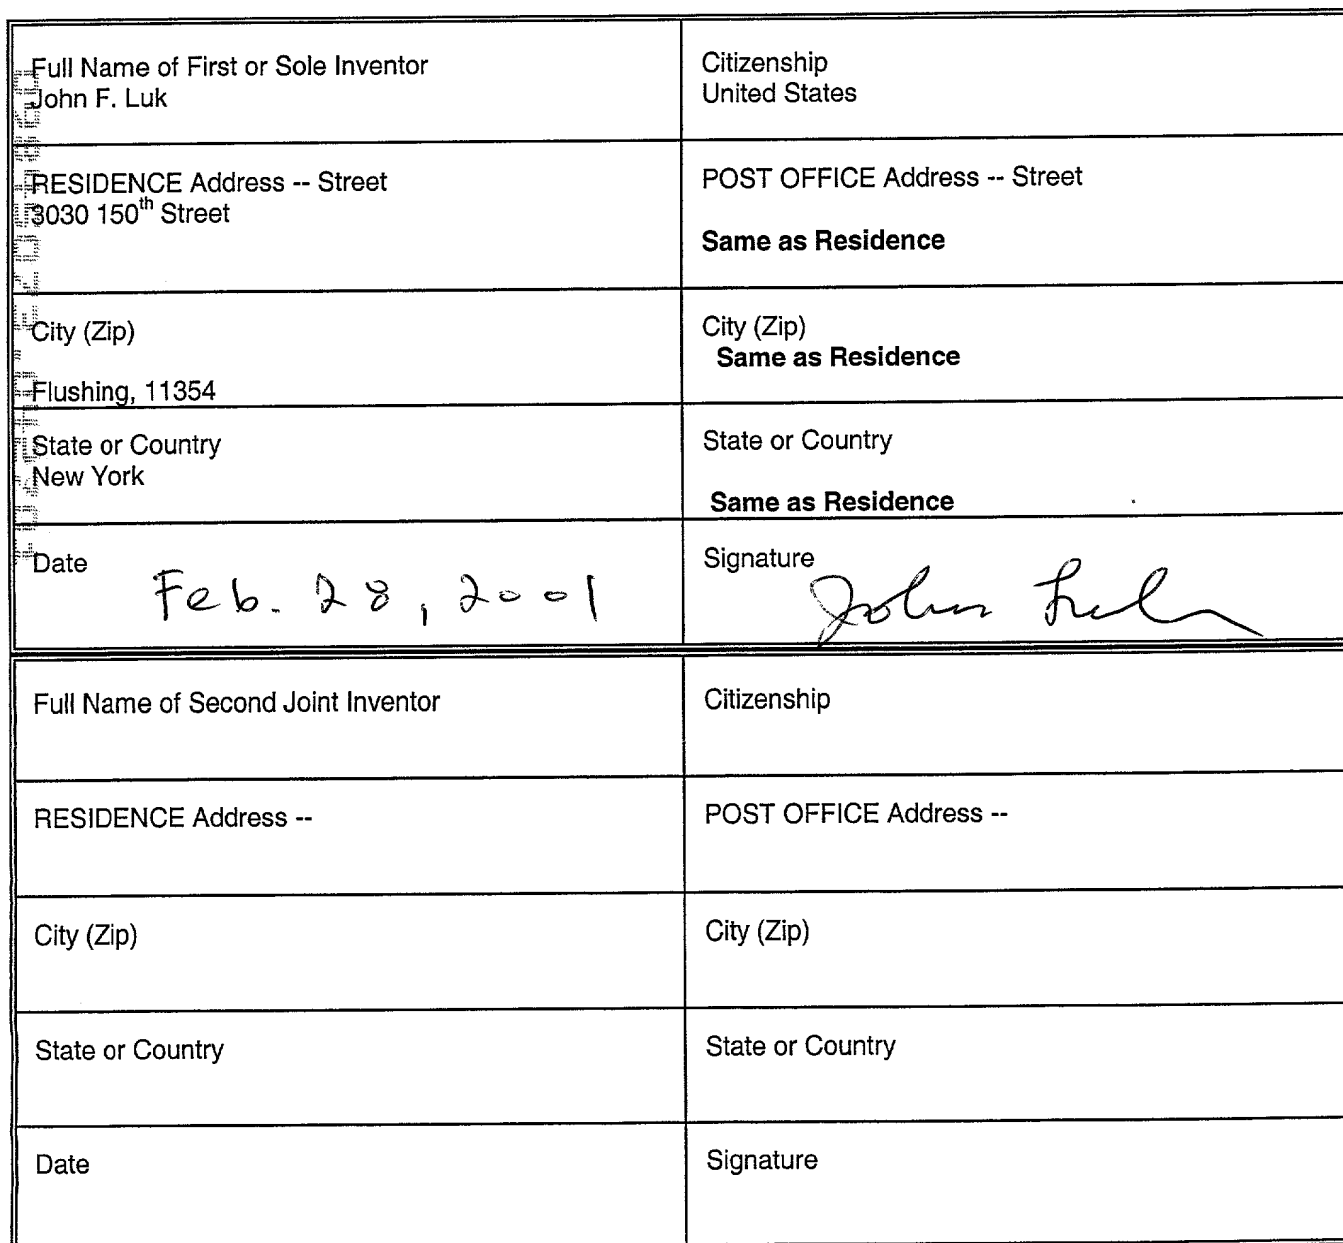 Full Name of First or Sole Inventor
John F. Luk
Citizenship
United States
RESIDENCE Address -- Street
3030 150th Street
POST OFFICE Address -- Street
Same as Residence
City (Zip)
Flushing, 11354
City (Zip)
Same as Residence
State or Country
New York
State or Country
Same as Residence
Date
Feb. 28, 2001
Signature
John Luk
Full Name of Second Joint Inventor
Citizenship
RESIDENCE Address --
POST OFFICE Address --
City (Zip)
City (Zip)
State or Country
State or Country
Date
Signature